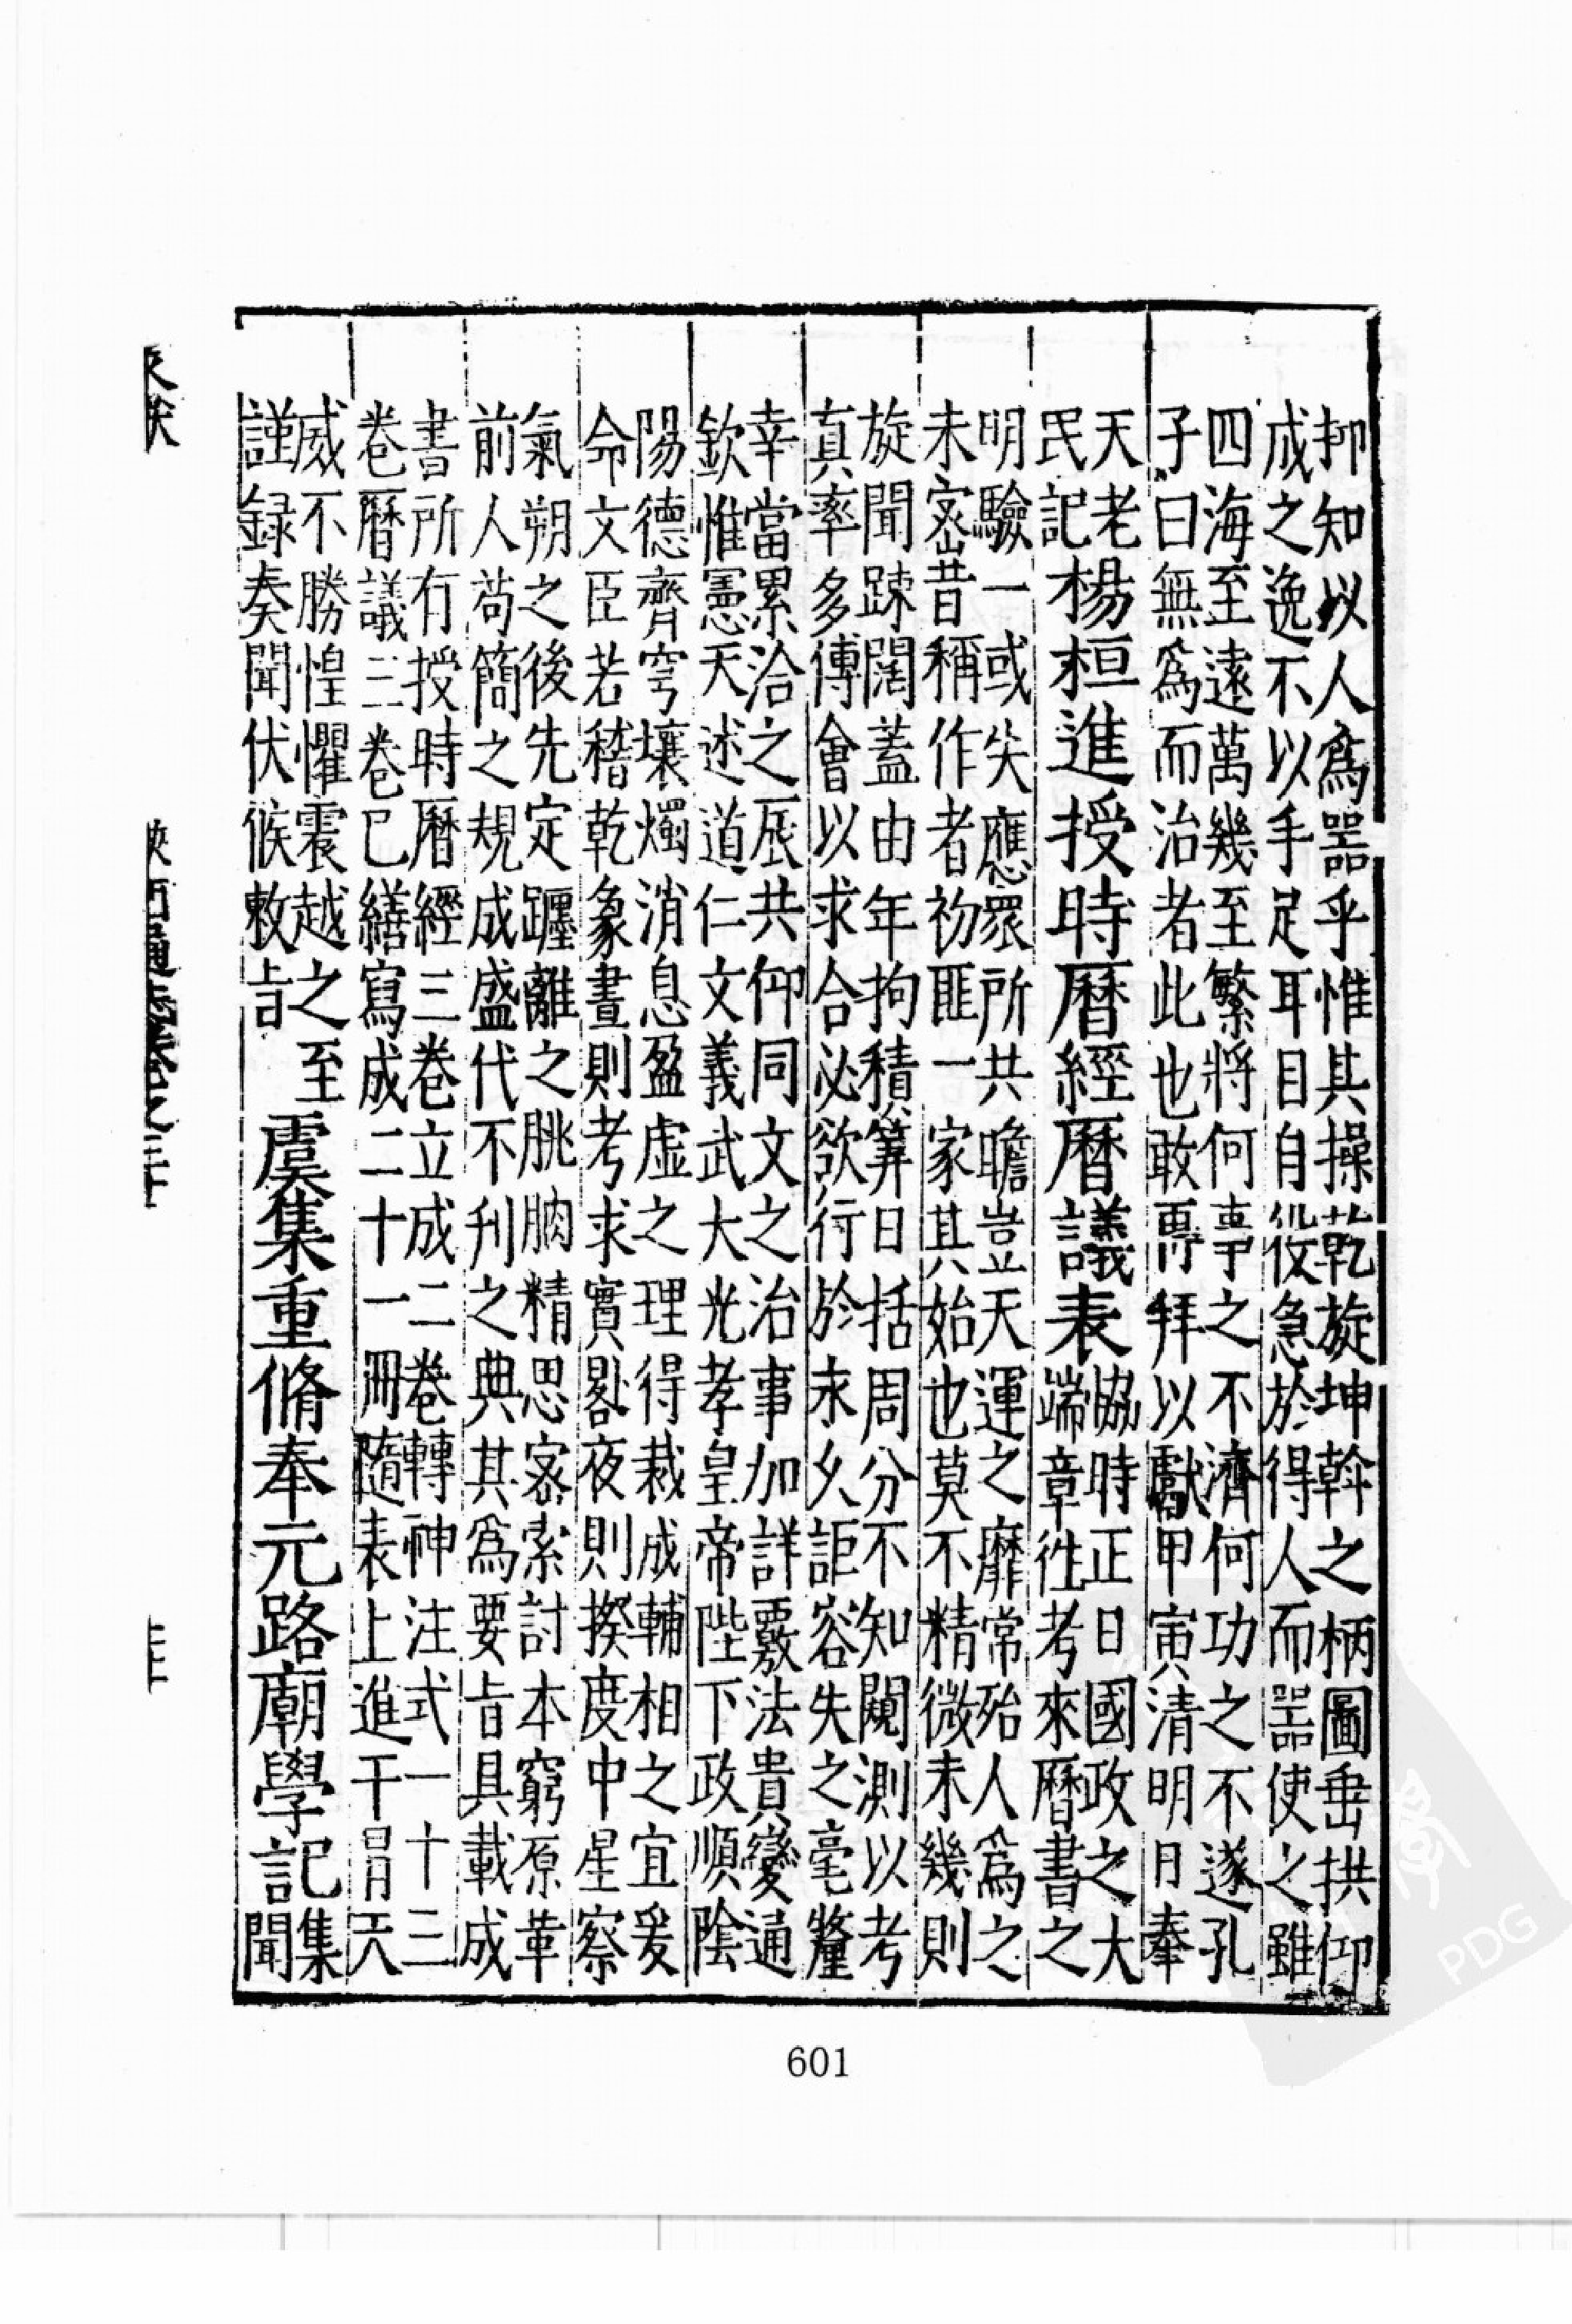 抑知以人爲器乎惟其操乾旋坤斡之柄圖垂拱仰
成之逸不以手足耳目自役急於得人而器使之雖
四海至遠萬幾至繁將何事之不濟何功之不遂孔
子曰無爲而治者此也敢再拜以獻甲寅清明月奉
天老
民記
楊桓進授時曆經曆議表
協時正日國政之大
端章徃考來曆書之
明驗一或失應衆所共瞻豈天運之靡常殆人爲之
未密昔稱作者初匪一家其始也莫不精微未幾則
旋聞踈闊蓋由年拘積筭日括周分不知闚測以考
真率多傅會以求合必欲行於永久詎容失之毫釐
幸當累洽之辰共仰同文之治事加詳覈法貴變通
欽惟憲天述道仁文義武大光孝皇帝陛下政順陰
陽德齊穹壤燭消息盈虛之理得裁成輔相之宜爰
命文臣若稽乾象晝則考求實晷夜則揆度中星察
氣朔之後先定躔離之朓朒精思密索討本窮原革
前人苟簡之規成盛代不刋之典其爲要旨具載成
書所有授時曆經三卷立成二卷轉神注式一十三
卷曆議三卷已繕寫成二十一冊隨表上進干冒天
威不勝惶懼震越之至
謹録奏聞伏候敕旨
虞集重脩奉元路廟學記
集
聞
601
PDG